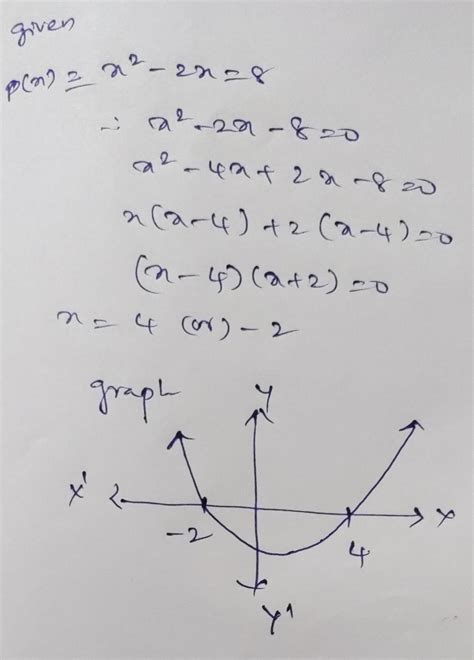 given
p(x) = x² - 2x = 8
∴ x² - 2x - 8 = 0
x² - 4x + 2x - 8 = 0
x(x-4) + 2(x-4) = 0
(x-4)(x+2) = 0
x = 4 (or) - 2
graph
Y
X'
X
-2
4
Y'